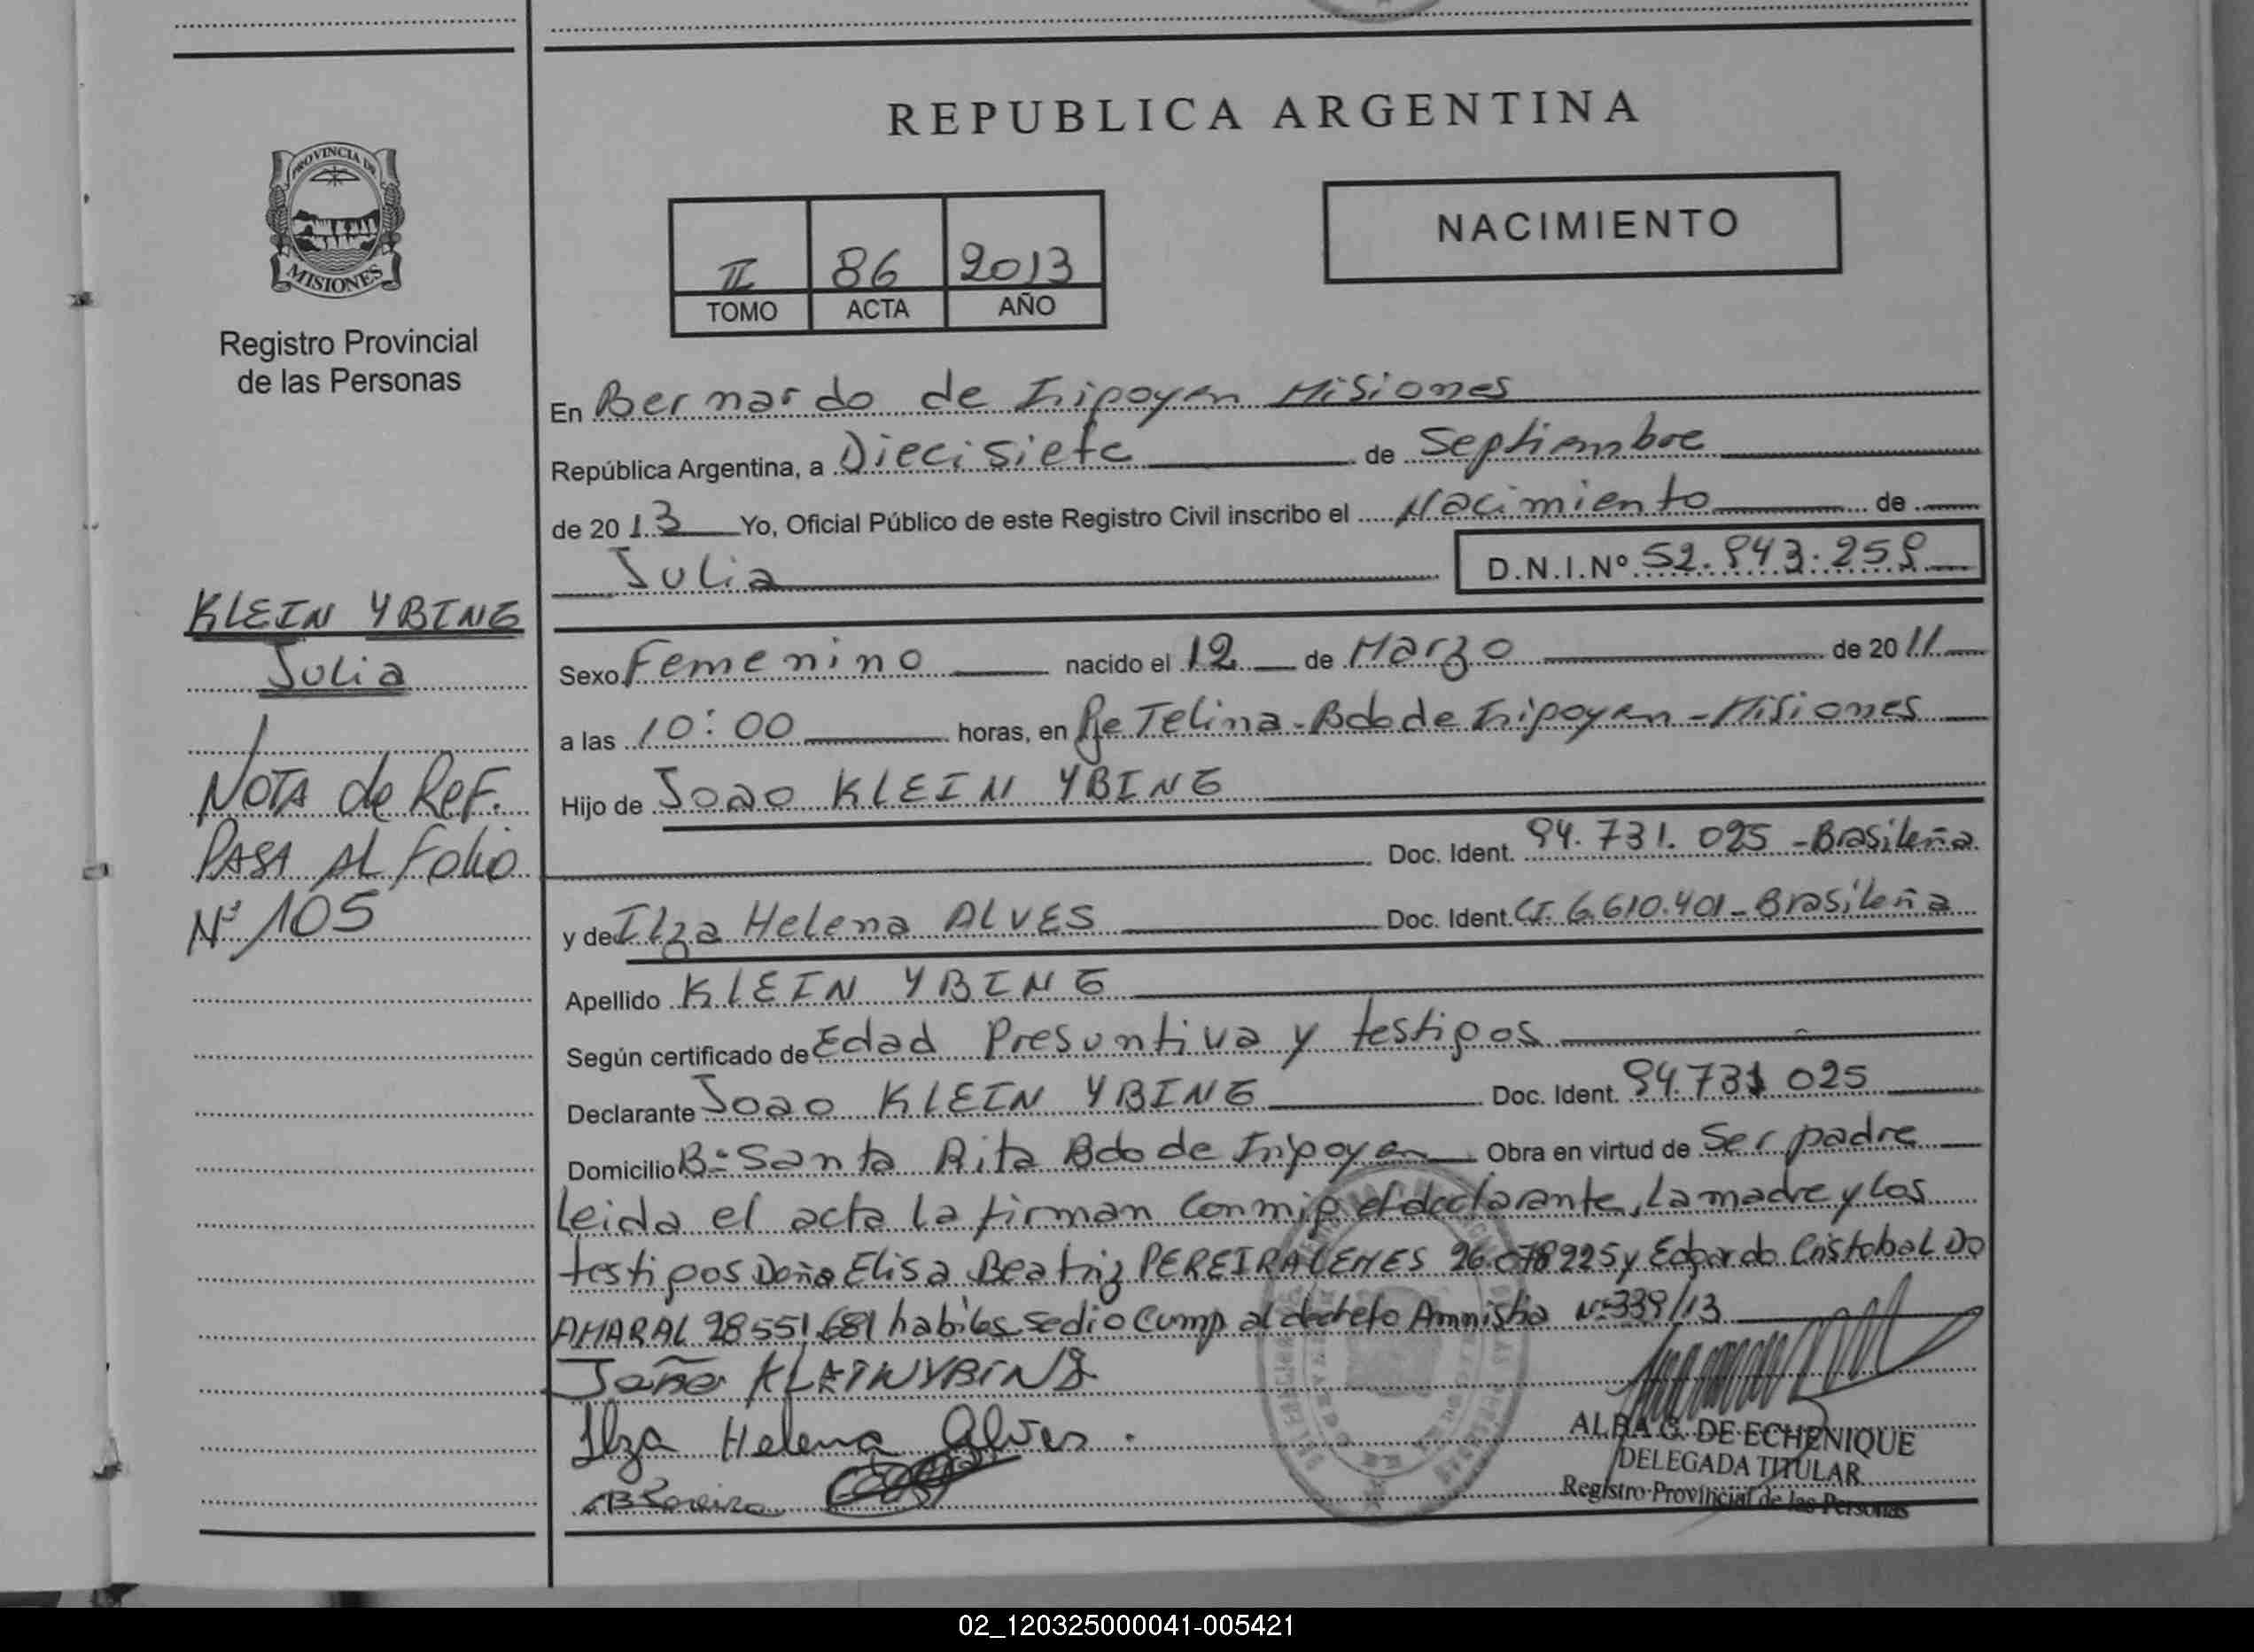 REPUBLICA ARGENTINA
PROVINCIA DE
MISIONES
Registro Provincial
de las Personas
NACIMIENTO
II 86 2013
TOMO ACTA AÑO
En Bernardo de Irigoyen Misiones
República Argentina, a Diecisiete de Septiembre
de 2013 Yo, Oficial Público de este Registro Civil inscribo el Nacimiento de
Julia D.N.I.Nº 52.943.259
KLEIN YBING
Julia
NOTA de ReF.
PASA AL Folio
Nº 105
Sexo Femenino nacido el 12 de Marzo de 2011
a las 10:00 horas, en Pje Telina - Bdo de Irigoyen - Misiones
Hijo de Joao KLEIN YBING
Doc. Ident. 94.731.025 - Brasileña
y de Ilza Helena ALVES Doc. Ident. CI. 6.610.401 - Brasileña
Apellido KLEIN YBING
Según certificado de Edad Presuntiva y testigos
Declarante Joao KLEIN YBING Doc. Ident. 94.731 025
Domicilio Bº Santa Rita Bdo de Irigoyen Obra en virtud de Ser padre
Leida el acta la firman conmigo el declarante, la madre y los
testigos Doña Elisa Beatriz PEREIRA LEMES 26.078225 y Edgardo Cristobal DO
AMARAL 28551.681 habiles se dio cump al decreto Amnistia Nº 339/13
João KLEINYBING
Ilza Helena Alves.
ALBA G. DE ECHENIQUE
DELEGADA TITULAR
Registro Provincial de las Personas
02_120325000041-005421